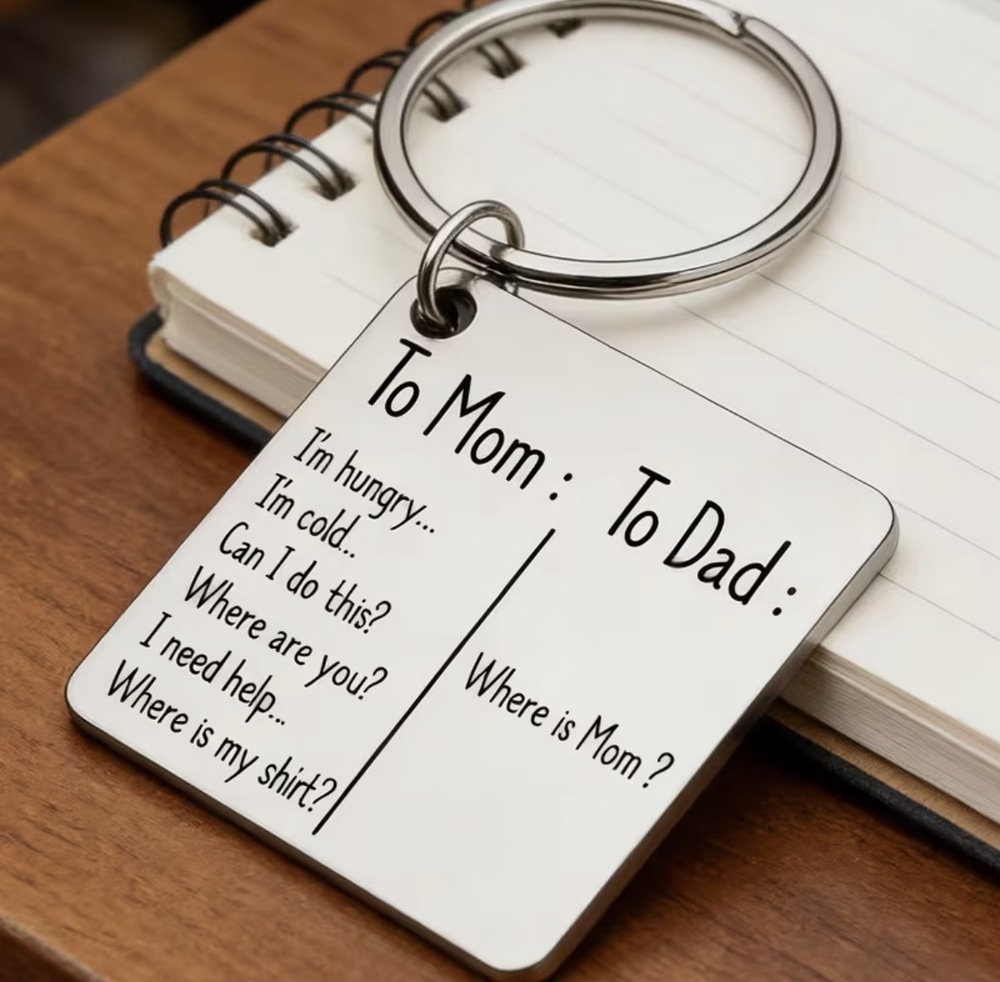 To Mom:
I'm hungry...
I'm cold..
Can I do this?
Where are you?
I need help...
Where is my shirt?
To Dad:
Where is Mom?